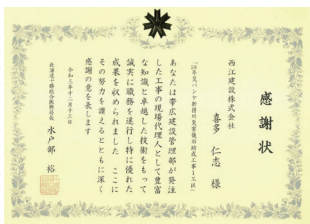 感謝状
西江建設株式会社
喜多 仁志 様
あなたは帯広建設管理部が発注
した工事の現場代理人として豊富
な知識と卓越した技術をもって
誠実に職務を遂行し特に優れた
成果を収められました ここに
その努力を讃えるとともに深く
感謝の意を表します
令和三年十二月十三日
北海道十勝総合振興局長 水戸部 裕